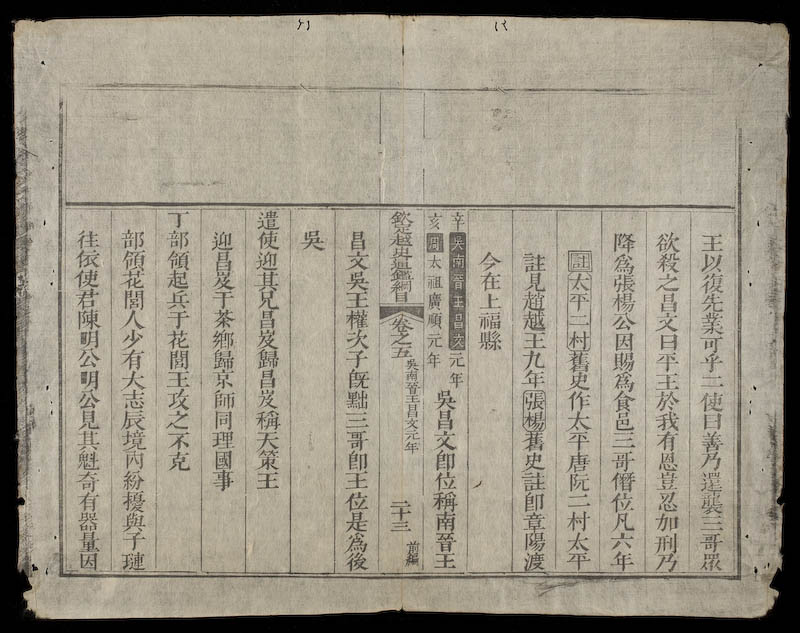 王以復先業可乎二使曰善乃還襲三哥眾
欲殺之昌文曰平王於我有恩豈忍加刑乃
降爲張楊公因賜爲食邑三哥僭位凡六年
註太平二村舊史作太平唐阮二村太平
註見趙越王九年張楊舊史註卽章陽渡
今在上福縣
辛亥
吳南晉王昌文元年
周太祖廣順元年
吳昌文卽位稱南晉王
欽定越史通鑑綱目 卷之五 吳南晉王昌文元年 二十三 前編
昌文吳王權次子旣黜三哥卽王位是爲後
吳
遣使迎其兄昌岌歸昌岌稱天策王
迎昌岌于茶鄉歸京師同理國事
丁部領起兵于花閭王攻之不克
部領花閭人少有大志辰境內紛擾與子璉
往依使君陳明公明公見其魁奇有器量因